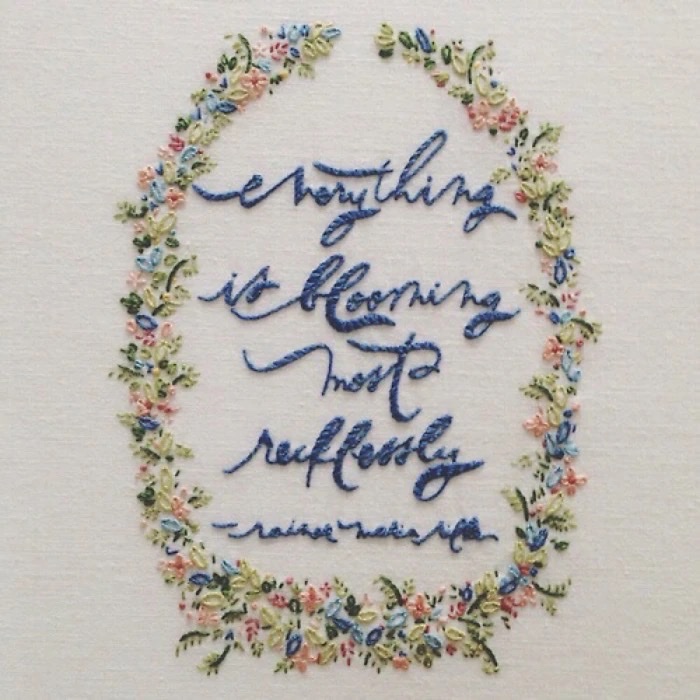 everything
is blooming
most
recklessly
- rainer maria rilke